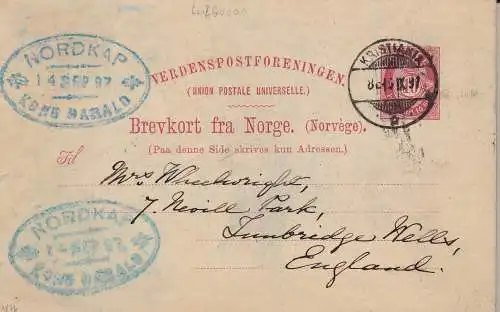 NORDKAP
14 SEP 97
KONG HARALD
KRISTIANIA
IX 97
2
VERDENSPOSTFORENINGEN.
(UNION POSTALE UNIVERSELLE.)
Brevkort fra Norge. (Norvège).
(Paa denne Side skrives kun Adressen.)
Til
Mrs Wheelwright,
7 Nevill Park,
Tunbridge Wells,
England.
NORDKAP
14 SEP 97
KONG HARALD